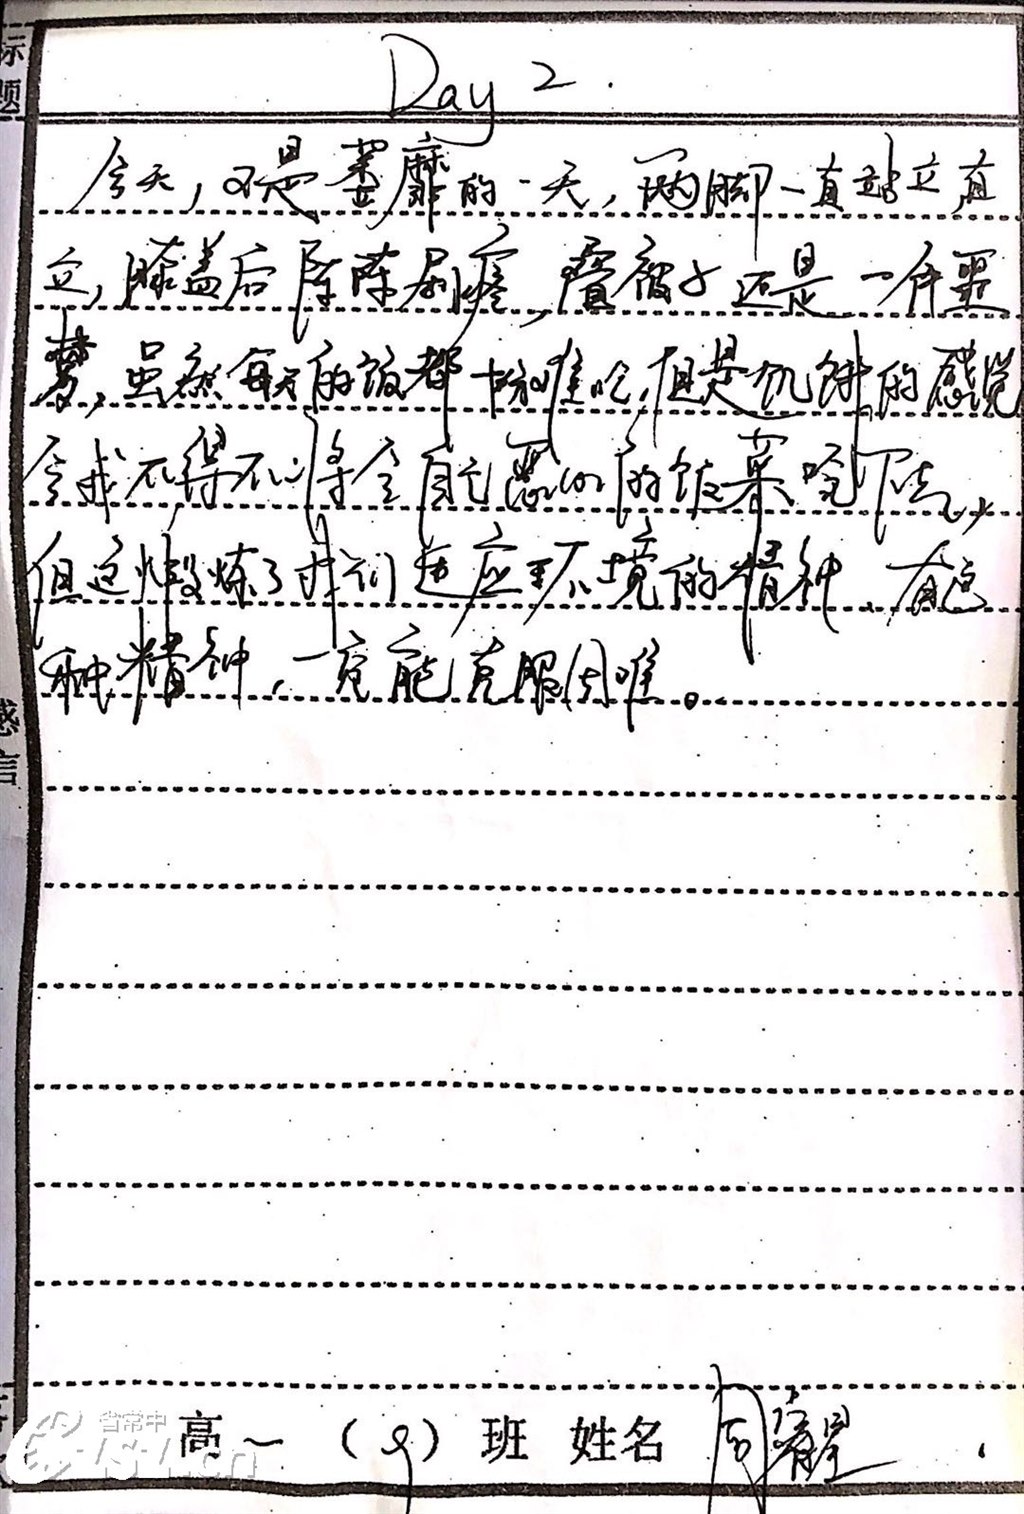 标题
Day 2.
今天,又是萎靡的一天,两脚一直站立直
立,膝盖后阵阵剧疼,叠被子还是一件噩
梦,虽然每天的饭都十分难吃,但是饥饿的感觉
令我不得不将令自己恶心的饭菜吃下去,
但这煅炼了我们适应环境的精神,有这
种精神,一定能克服困难。
感言
高一(9)班 姓名 周
省常中